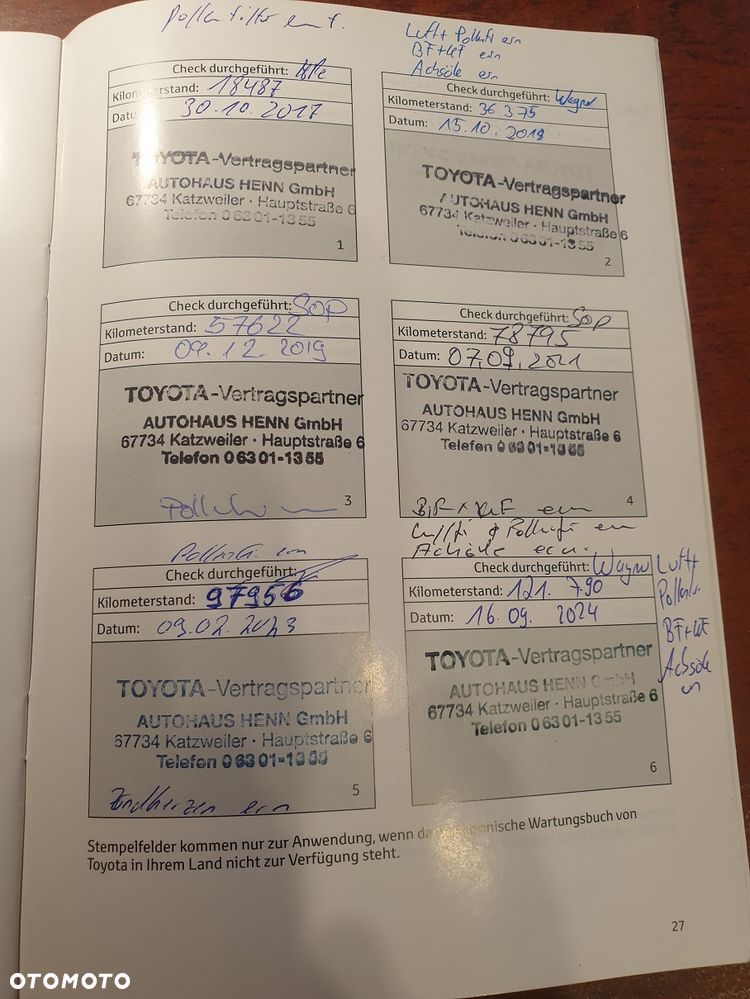 Pollenfilter ern.
Check durchgeführt:
Kilometerstand: 18487
Datum: 30.10.2017
TOYOTA-Vertragspartner
AUTOHAUS HENN GmbH
67734 Katzweiler · Hauptstraße 6
Telefon 0 63 01-13 55
1
Luft+ Pollenfi ern
BF+KF ern
Achsöle ern
Check durchgeführt: Wagner
Kilometerstand: 36375
Datum: 15.10.2018
TOYOTA-Vertragspartner
AUTOHAUS HENN GmbH
67734 Katzweiler · Hauptstraße 6
Telefon 0 63 01-13 55
2
Check durchgeführt: Sop
Kilometerstand: 57622
Datum: 09.12.2019
TOYOTA-Vertragspartner
AUTOHAUS HENN GmbH
67734 Katzweiler · Hauptstraße 6
Telefon 0 63 01-13 55
3
Check durchgeführt: Sop
Kilometerstand: 78795
Datum: 07.09.2021
TOYOTA-Vertragspartner
AUTOHAUS HENN GmbH
67734 Katzweiler · Hauptstraße 6
Telefon 0 63 01-13 55
4
Achsöle ern.
Check durchgeführt:
Kilometerstand: 97956
Datum: 09.02.2023
TOYOTA-Vertragspartner
AUTOHAUS HENN GmbH
67734 Katzweiler · Hauptstraße 6
Telefon 0 63 01-13 55
5
Zündkerzen ern
Check durchgeführt: Wagner
Kilometerstand: 121.790
Datum: 16.09.2024
TOYOTA-Vertragspartner
AUTOHAUS HENN GmbH
67734 Katzweiler · Hauptstraße 6
Telefon 0 63 01-13 55
6
Luft+
BF+KF
Achsöle
ern
Stempelfelder kommen nur zur Anwendung, wenn Wartungsbuch von
Toyota in Ihrem Land nicht zur Verfügung steht.
27
OTOMOTO